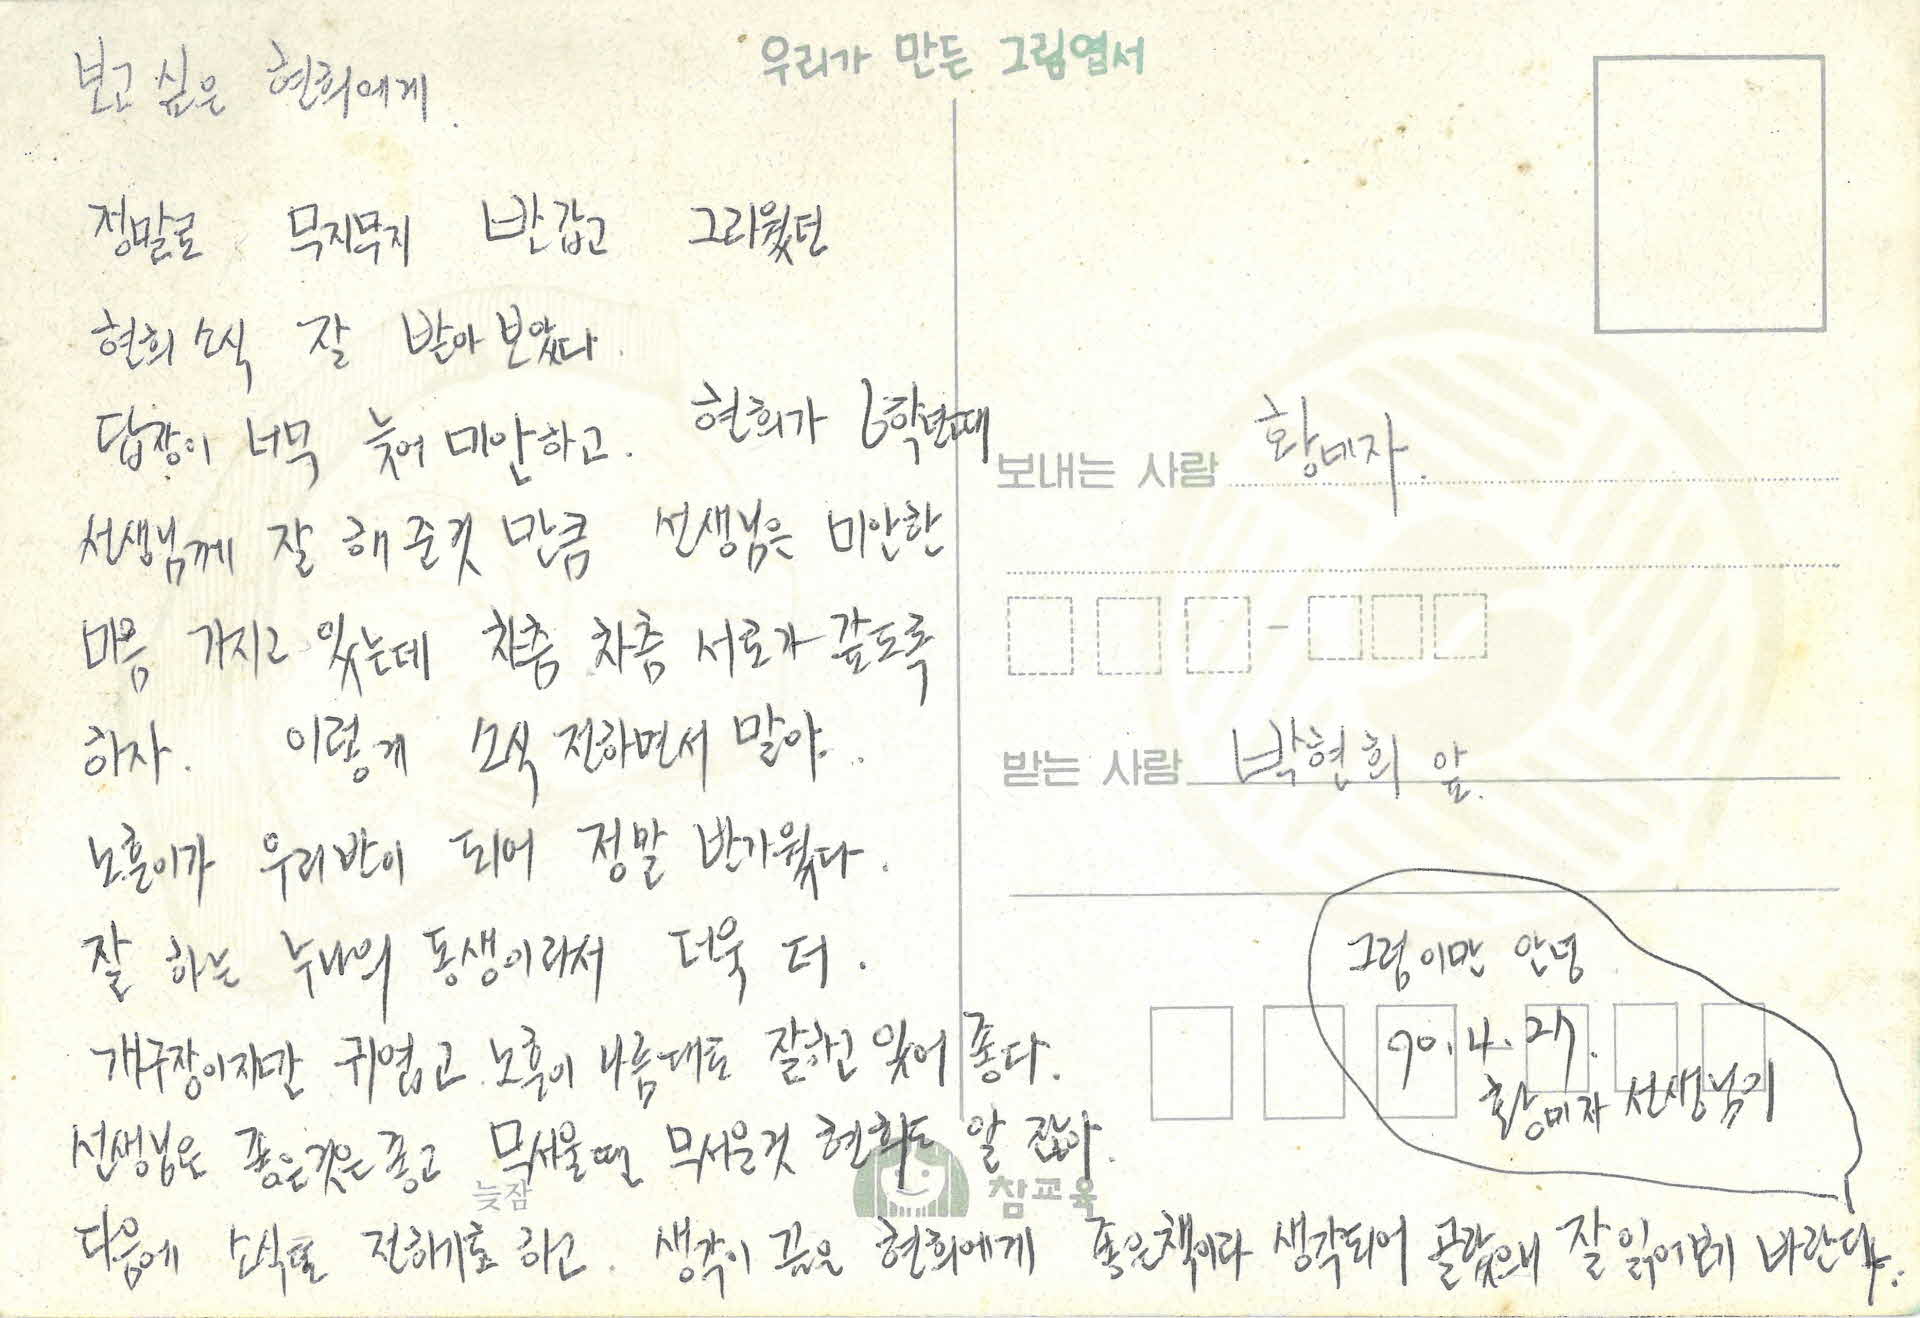 우리가 만든 그림엽서
보고 싶은 현희에게.
정말로 무지무지 반갑고 그리웠던
현희 소식 잘 받아 보았다.
답장이 너무 늦어 미안하고. 현희가 6학년때
선생님께 잘 해 준것 만큼 선생님은 미안한
마음 가지고 있는데 차츰 차츰 서로가 갚도록
하자. 이렇게 소식 전하면서 말야..
노훈이가 우리반이 되어 정말 반가웠다.
잘 하는 누나의 동생이라서 더욱 더.
개구장이지만 귀엽고 노훈이 나름대로 잘하고 있어 좋다.
선생님은 좋은것은 좋고 무서울땐 무서운것 현희도 알 잖아.
다음에 소식또 전하기로 하고. 생각이 깊은 현희에게 좋은책이라 생각되어 골랐으니 잘 읽어보기 바란다..
보내는 사람 황미자.
받는 사람 박현희 앞.
그럼 이만 안녕
90.4.27.
황미자 선생님기
늦잠
참교육